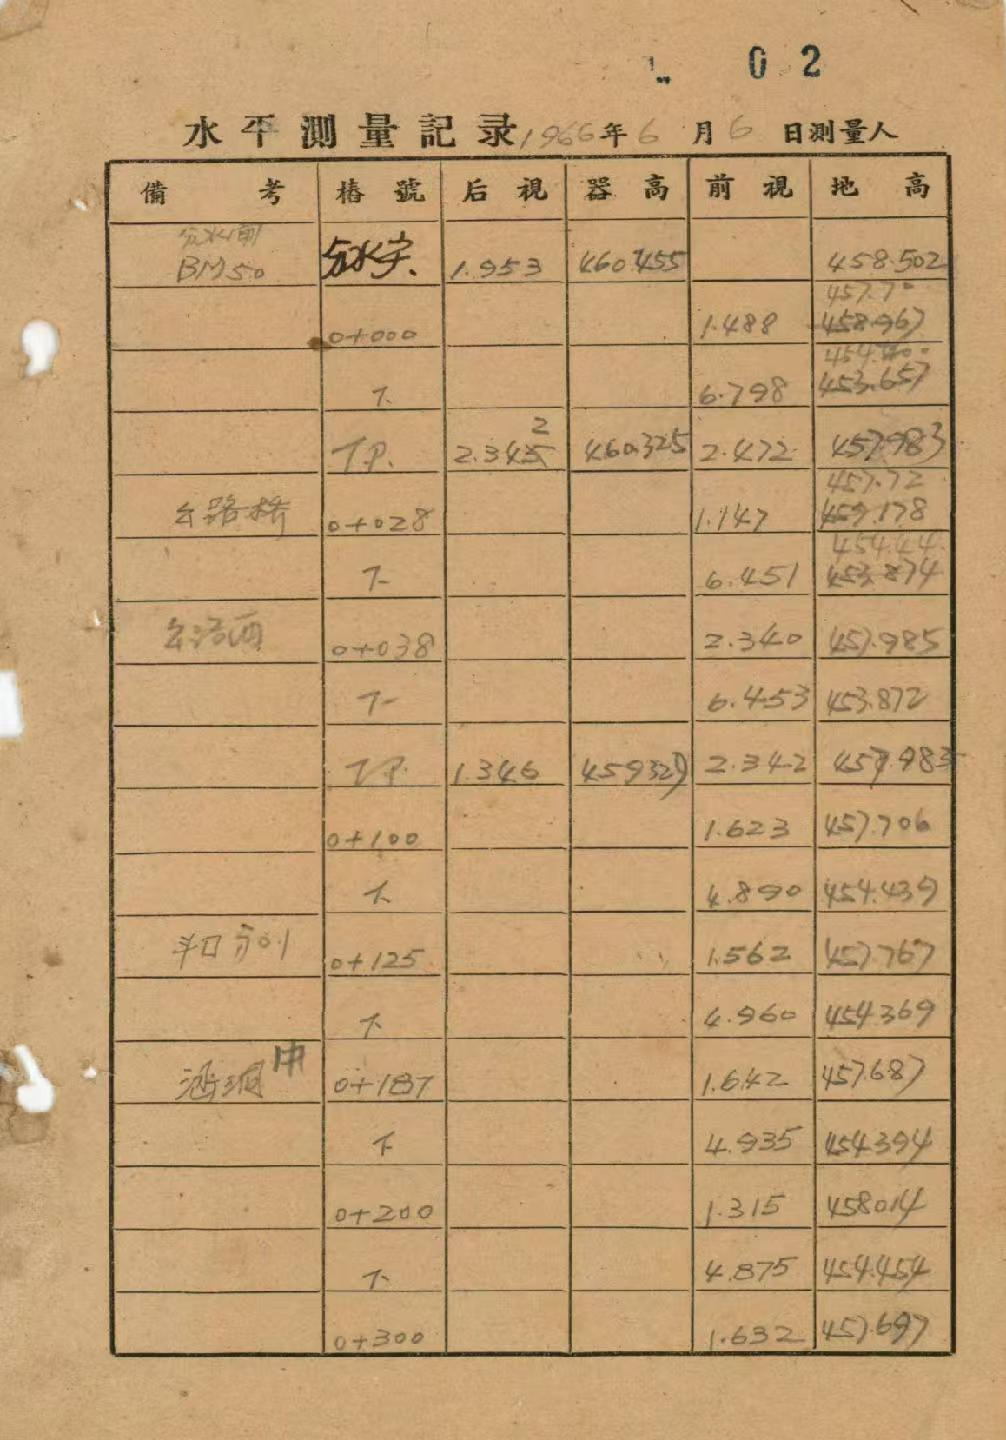 02
水平測量記录1966年6月6日測量人
備考 樁號 后視 器高 前視 地高
BM50 分水宇 1.953 460.455 458.502
457.70
0+000 1.488 458.967
下 6.798 453.657
2
T.P. 2.345 460.325 2.472 457.983
457.72
公路桥 0+028 1.147 459.178
454.44
下 6.451 453.874
0+038 2.340 457.985
下 6.453 453.872
T.P. 1.346 459329 2.342 457.983
0+100 1.623 457.706
下 4.890 454.439
斗口 0+125 1.562 457.767
下 4.960 454369
中
0+187 1.642 457.687
下 4.935 454394
0+200 1.315 458014
下 4.875 454.454
0+300 1.632 457.697